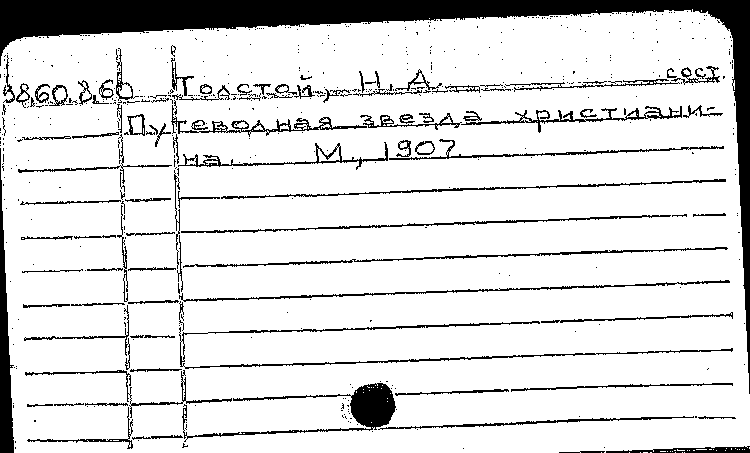 3860.8.60 Толстой, Н. А. сост.
Путеводная звезда христиани-
на. М., 1907.